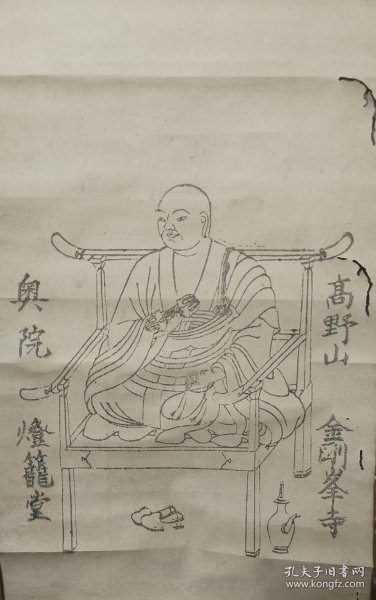 高野山 金剛峯寺
奥院 燈籠堂
孔夫子旧书网
kongfz.com